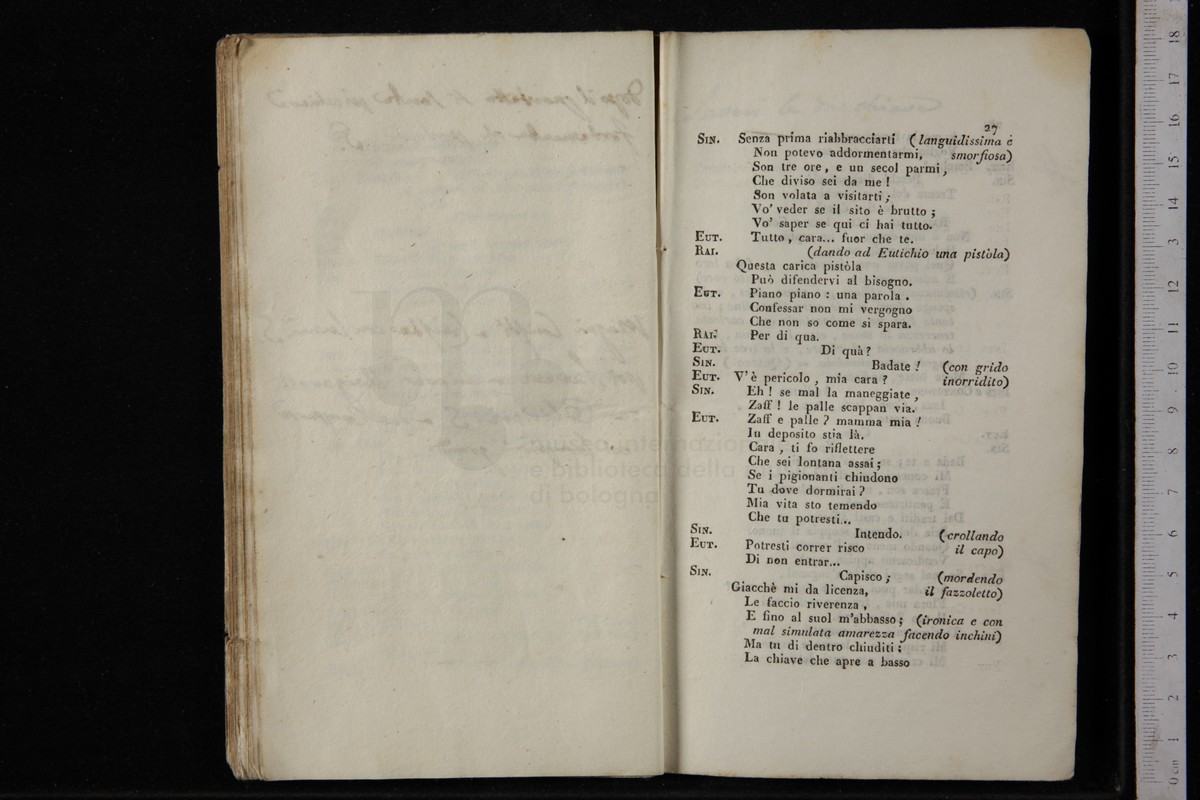 27
SIN. Senza prima riabbracciarti (languidissima e
Non potevo addormentarmi, smorfiosa)
Son tre ore, e un secol parmi,
Che diviso sei da me !
Son volata a visitarti ;
Vo' veder se il sito è brutto ;
Vo' saper se qui ci hai tutto.
EUT. Tutto, cara... fuor che te.
RAI. (dando ad Eutichio una pistola)
Questa carica pistòla
Può difendervi al bisogno.
EUT. Piano piano : una parola .
Confessar non mi vergogno
Che non so come si spara.
RAI. Per di qua.
EUT. Di quà ?
SIN. Badate ! (con grido
EUT. V'è pericolo , mia cara ? inorridito)
SIN. Eh ! se mal la maneggiate ,
Zaff ! le palle scappan via.
EUT. Zaff e palle ? mamma mia !
In deposito stia là.
Cara , ti fo riflettere
Che sei lontana assai ;
Se i pigionanti chiudono
Tu dove dormirai ?
Mia vita sto temendo
Che tu potresti...
SIN. Intendo. (crollando
EUT. Potresti correr risco il capo)
Di non entrar...
SIN. Capisco ; (mordendo
Giacchè mi da licenza, il fazzoletto)
Le faccio riverenza ,
E fino al suol m'abbasso ; (ironica e con
mal simulata amarezza facendo inchini)
Ma tu di dentro chiuditi ;
La chiave che apre a basso
museo internazion
e biblioteca della
di bologna
0 cm 1 2 3 4 5 6 7 8 9 10 11 12 13 14 15 16 17 18